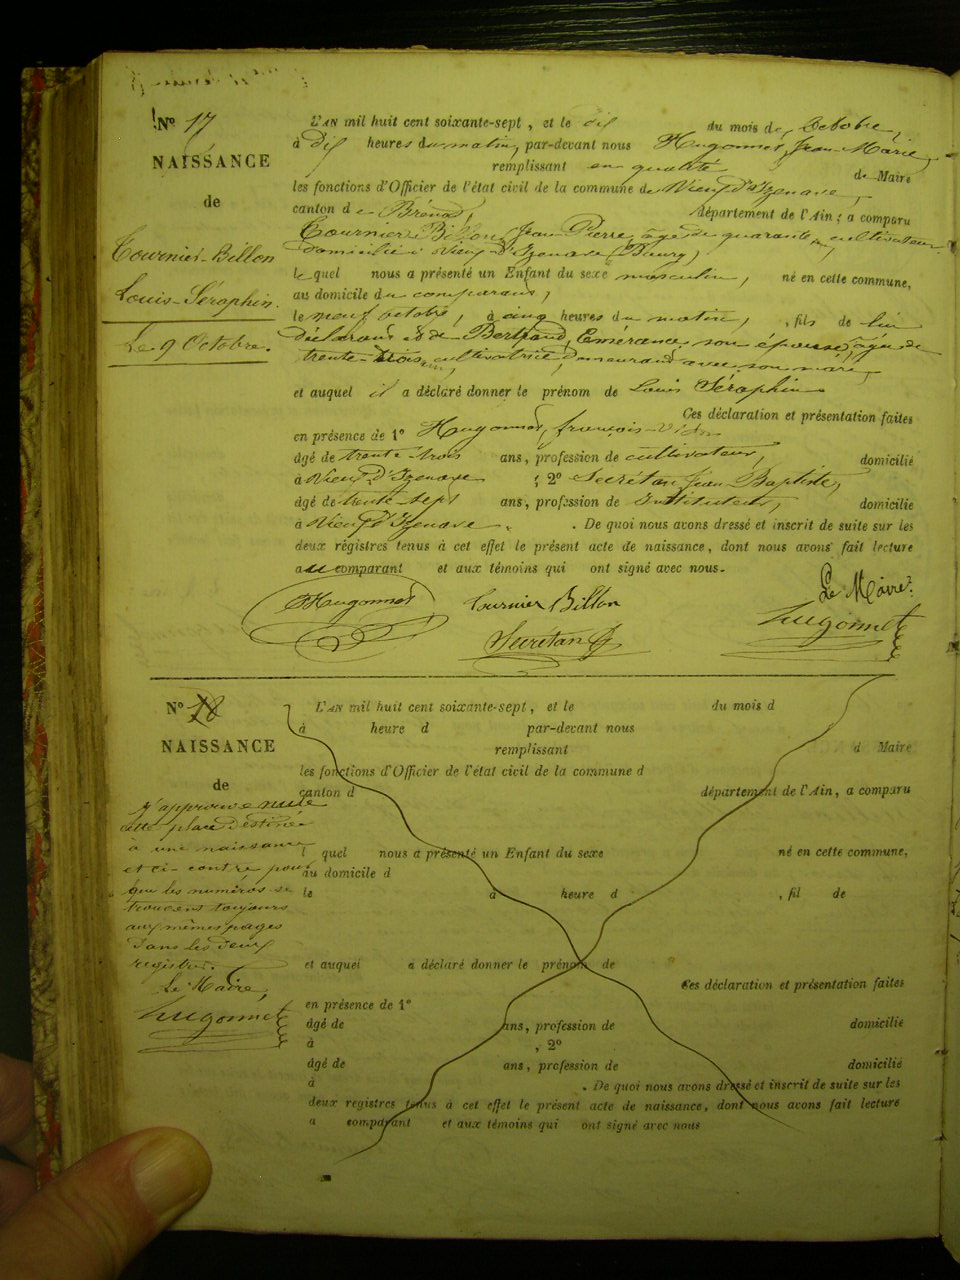 No 17
NAISSANCE
de
Tournier-Billon
Louis-Séraphin.
Le 9 Octobre.
L'AN mil huit cent soixante-sept, et le dix du mois de Octobre,
à dix heures du matin, par-devant nous Hugonnet, Jean-Marie,
remplissant en qualité de Maire
les fonctions d'Officier de l'état civil de la commune de Vieux-d'Izenave,
canton de Brénod, département de l'Ain; a comparu
Tournier-Billon, Jean-Pierre, âgé de quarante un, cultivateur
domicilié à Vieux-d'Izenave
lequel nous a présenté un Enfant du sexe masculin, né en cette commune,
au domicile du comparant,
le neuf octobre, à cinq heures du matin, , fils de lui
déclarant & de Bertrand, Emérance, son épouse, âgée de
trente-trois ans, cultivatrice, demeurant avec son mari,
et auquel il a déclaré donner le prénom de Louis Séraphin
Ces déclaration et présentation faites
en présence de 1° Hugonnet, françois
âgé de trente-trois ans, profession de cultivateur, domicilié
à Vieux-d'Izenave ; 2° Secrétan Jean Baptiste,
âgé de trente sept ans, profession de Instituteur, domicilié
à Vieux d'Izenave . De quoi nous avons dressé et inscrit de suite sur les
deux registres tenus à cet effet le présent acte de naissance, dont nous avons fait lecture
au comparant et aux témoins qui ont signé avec nous.
Le Maire:
Hugonnet Tournier Billon Hugonnet
Secrétan
No 18
NAISSANCE
de
J'approuve nulle
cette place destinée
à une naissance
et ci-contre pour
que les numéros se
trouvent toujours
aux mêmes pages
dans les deux
registres.
Le Maire,
Hugonnet
L'AN mil huit cent soixante-sept, et le du mois d
à heure d par-devant nous
remplissant d Maire
les fonctions d'Officier de l'état civil de la commune d
canton d département de l'Ain, a comparu
l quel nous a présenté un Enfant du sexe né en cette commune,
au domicile d
le à heure d , fil de
et auquel a déclaré donner le prénom de
Ces déclaration et présentation faites
en présence de 1°
âgé de ans, profession de domicilié
à ; 2°
âgé de ans, profession de domicilié
à . De quoi nous avons dressé et inscrit de suite sur les
deux registres tenus à cet effet le présent acte de naissance, dont nous avons fait lecture
a comparant et aux témoins qui ont signé avec nous